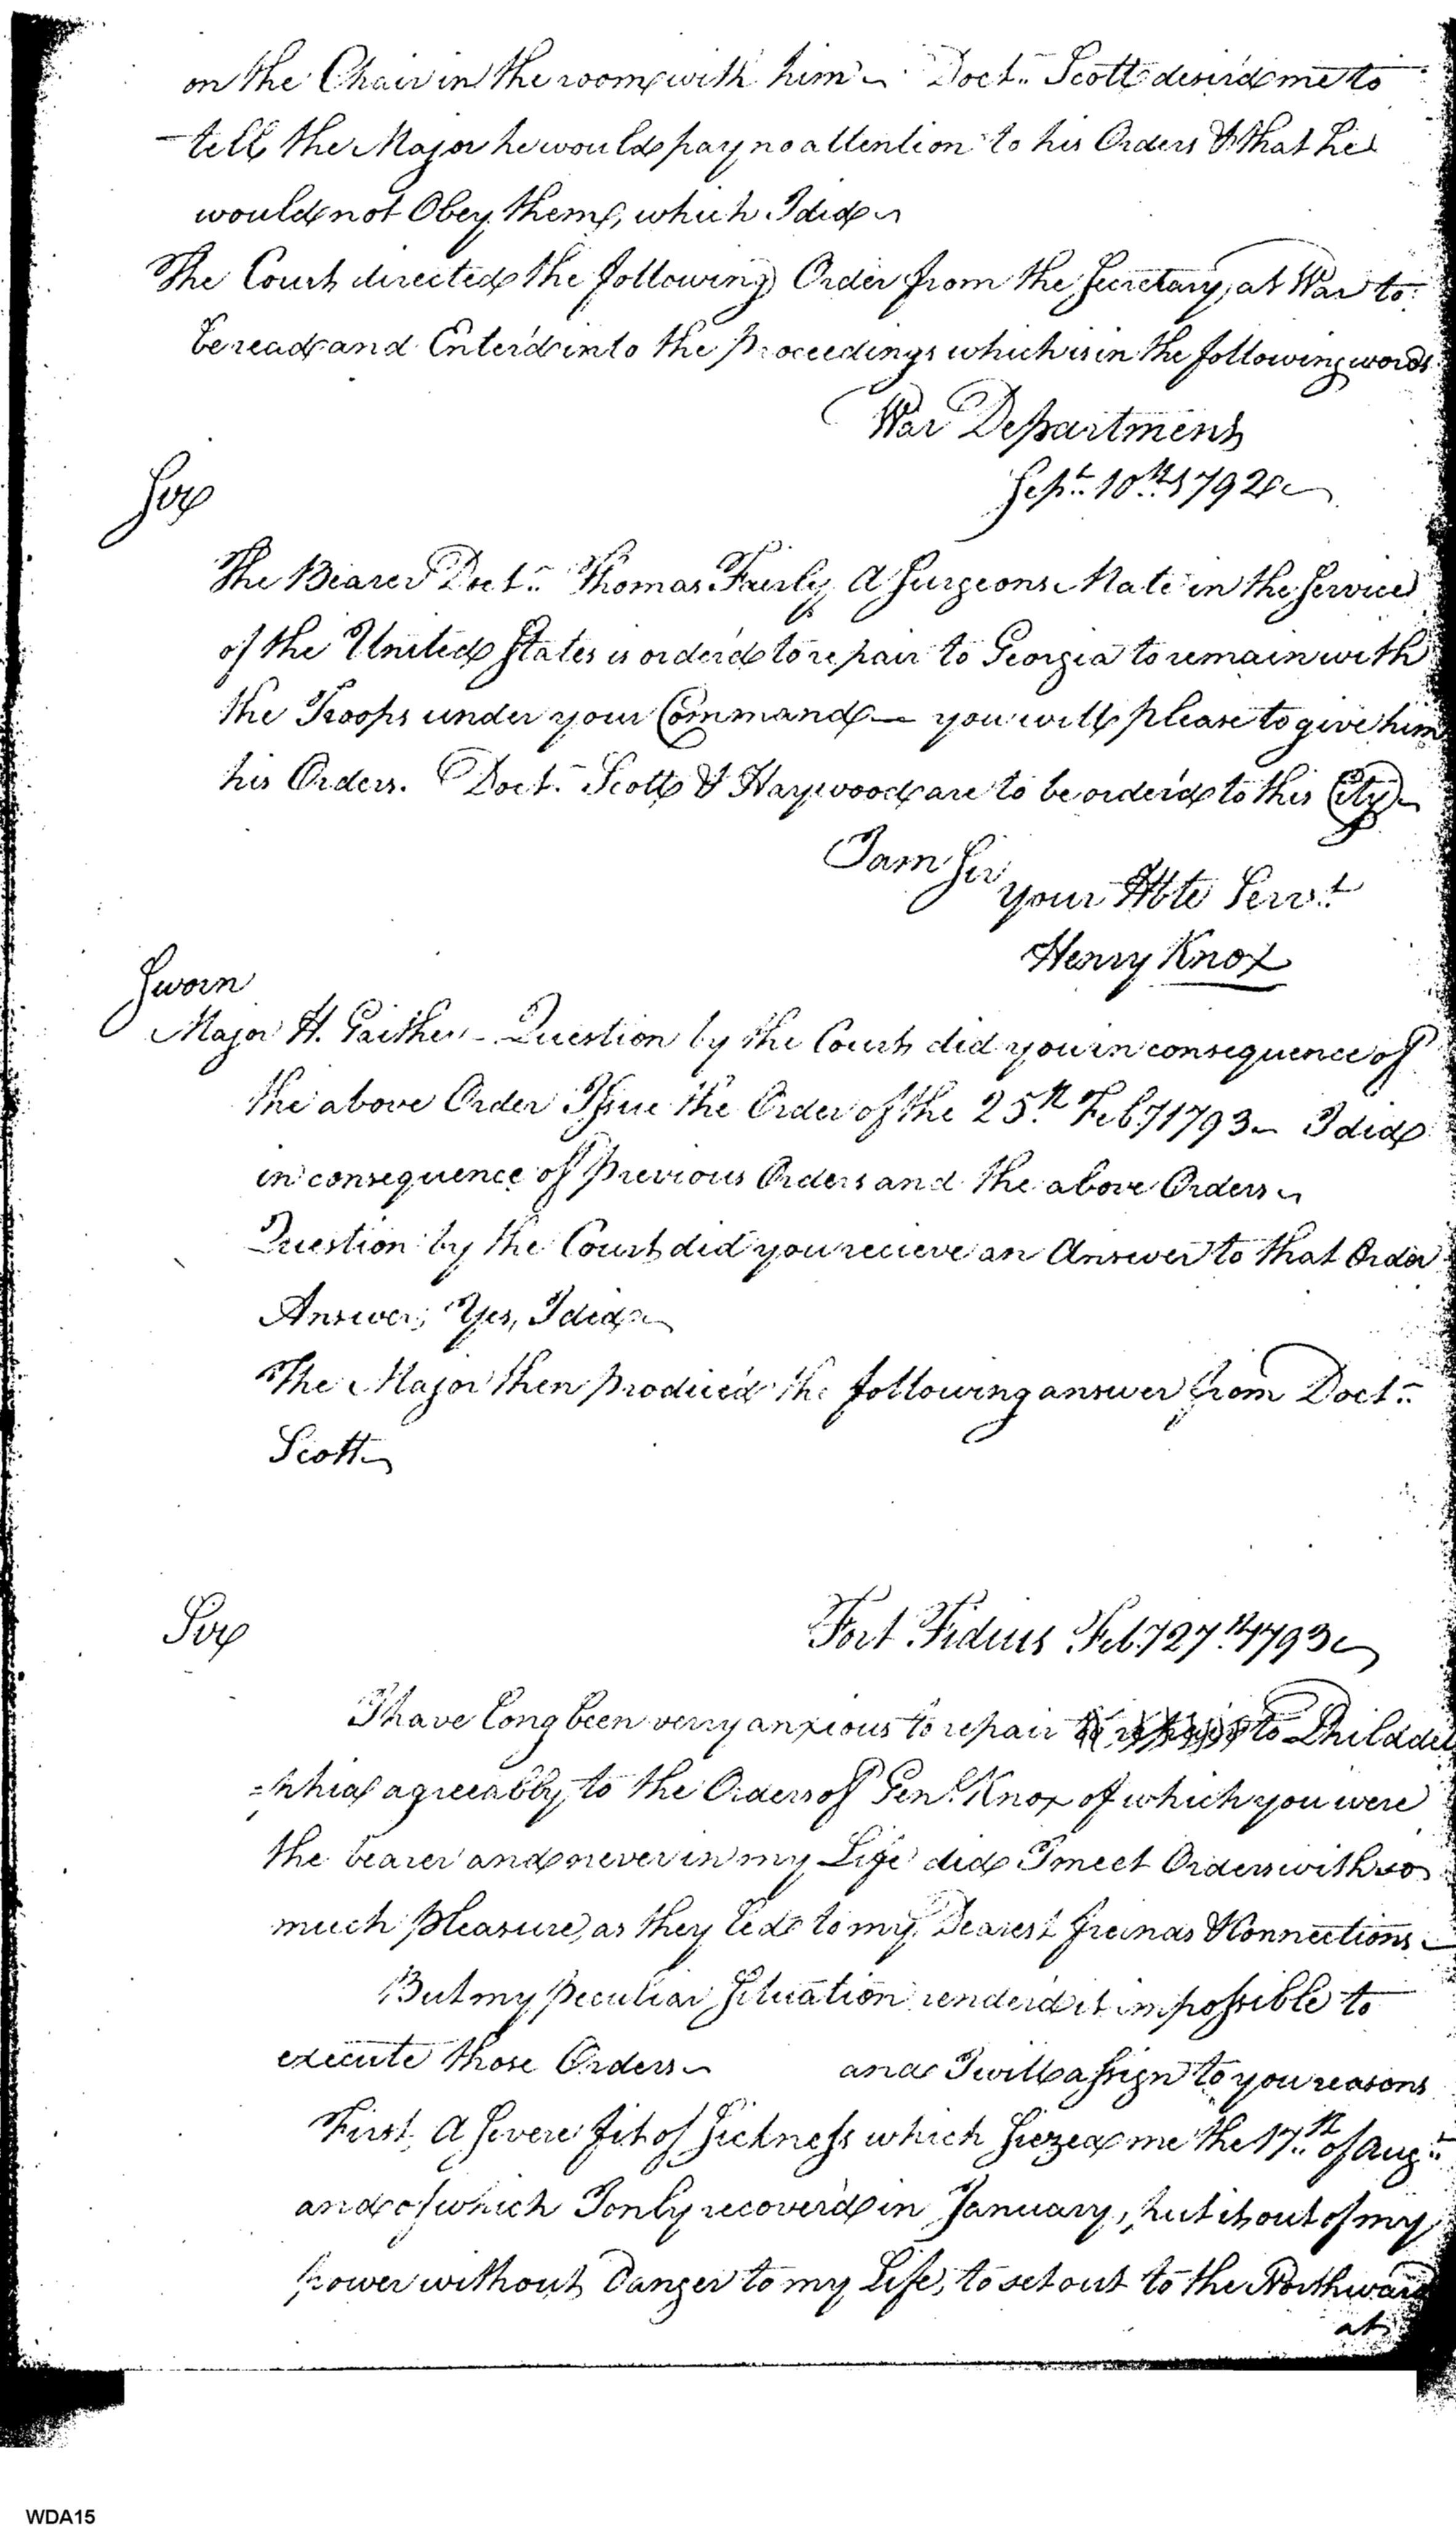 on the Chair in the room with him Doct. Scott desir'd me to
tell the Major he would pay no attention to his Orders & that he
would not Obey them, which I did
The Court directed the following Order from the Secretary at War to
be read and Enter'd into the Proceedings which is in the following words
War Department
Sept. 10th 1792
Sir
The Bearer Doct. Thomas Fairly A Surgeons Mate in the Service
of the United States is order'd to repair to Georgia to remain with
the Troops under your Command — you will please to give him
his Orders. Doct. Scott & Haywood are to be order'd to this City
I am Sir
your Hble Servt.
Henry Knox
Sworn
Major H. Gaither - Question by the Court did you in consequence of
the above Order Issue the Order of the 25th Feby 1793 I did
in consequence of Previous Orders and the above Orders
Question by the Court did you recieve an Answer to that Order
Answer, Yes, I did
The Major then produced the following answer from Doct.
Scott
Fort Fidius Feby 27th 1793
Sir
I have long been verry anxious to repair to Philadel
=phia agreeably to the Orders of Genl. Knox of which you were
the bearer and never in my Life did I meet Orders with so
much pleasure, as they led to my Dearest freinds & Connections
But my peculiar Situation render'd it impossible to
execute those Orders and I will assign to you reasons
First, A Severe fit of Sickness which Siezed me the 17th. of Augt.
and of which I only recover'd in January, put it out of my
power without Danger to my Life, to set out to the Northward
at
WDA15